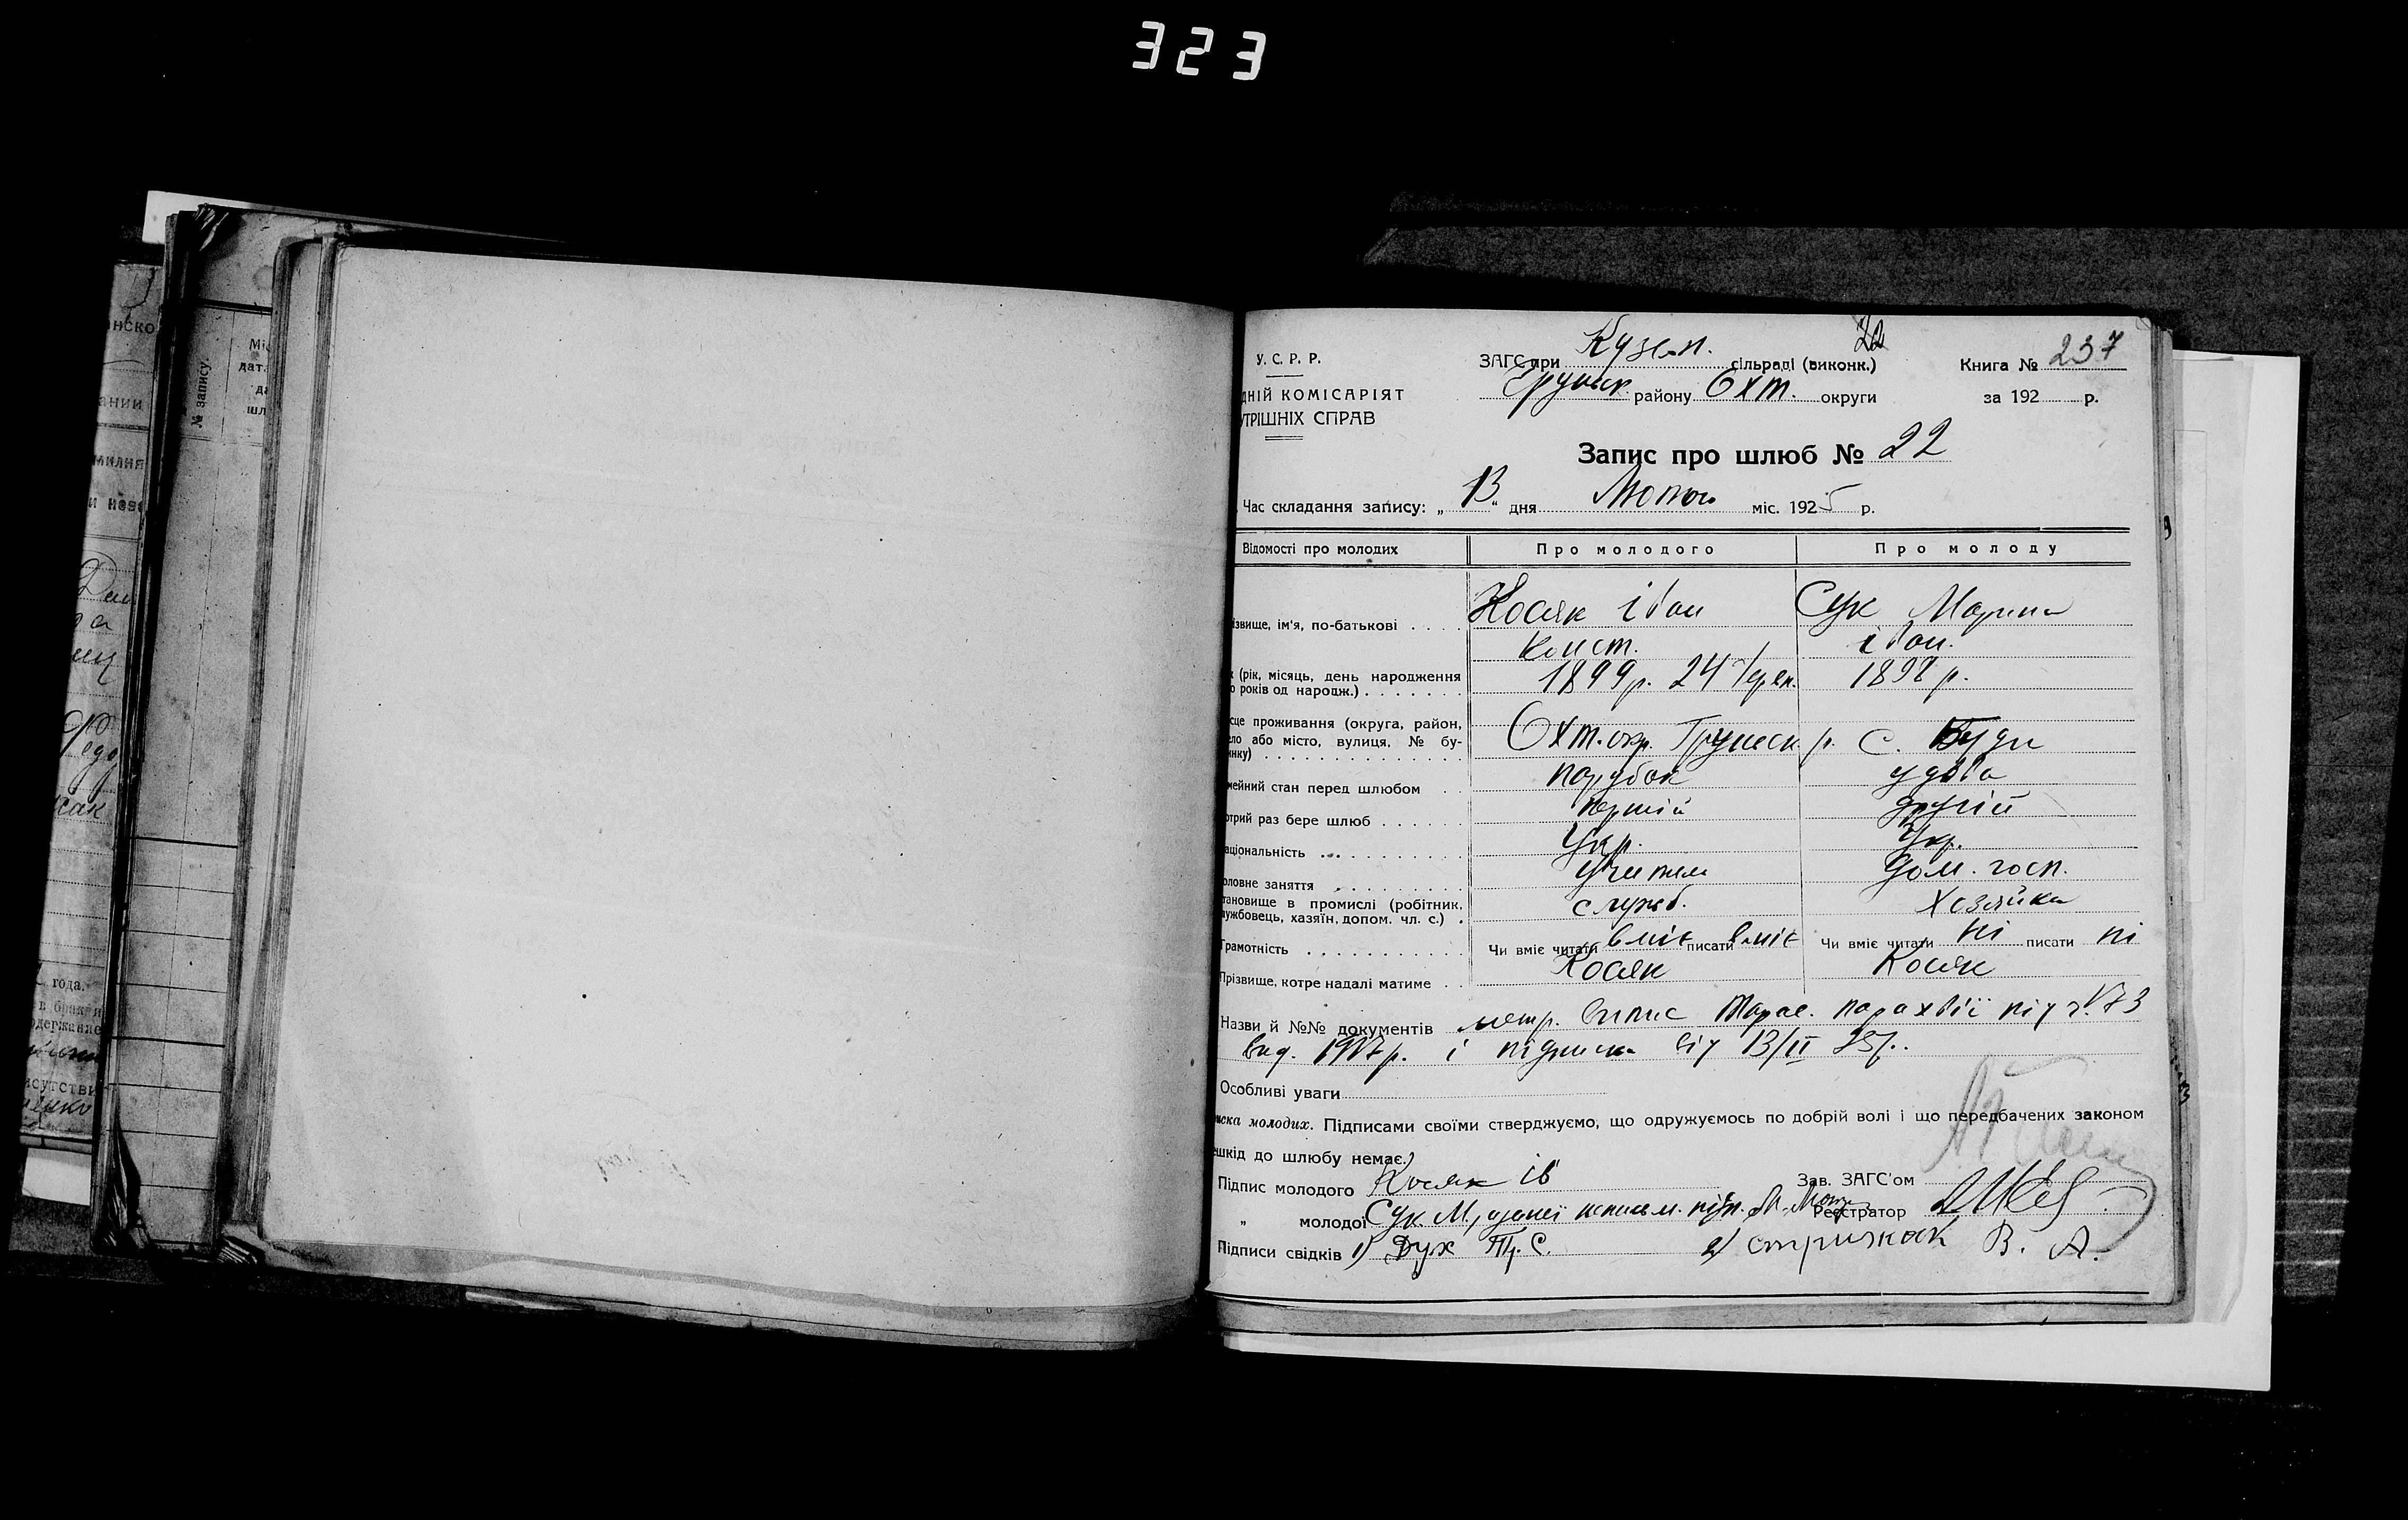 323
У. С. Р. Р.
ДНІЙ КОМІСАРІЯТ
УТРІШНІХ СПРАВ
ЗАГС при Кузем. сільраді (виконк.)
22
Груньск. району Охт. округи
Книга № 237
за 192 р.
Запис про шлюб № 22
Час складання запису: „ 13 “ дня Лютого міс. 1925 р.
Відомості про молодих
Про молодого
Про молоду
ізвище, ім'я, по-батькові . . . .
Косяк Іван
Конст.
Сук Марина
Іван.
к (рік, місяць, день народження
о років од народж.) . . . . . . .
1899 р. 24 Червн.
1898 р.
сце проживання (округа, район,
ело або місто, вулиця, № бу-
инку) . . . . . . . . . . . . . . .
Охт. окр. Грунск. р. С. Буди
мейний стан перед шлюбом . .
парубок
удова
отрий раз бере шлюб . . . . . .
перший
другий
аціональність . . . . . . . . . .
Укр.
Укр.
оловне заняття . . . . . . . . . .
Учитель
Дом. госп.
тановище в промислі (робітник,
лужбовець, хазяїн, допом. чл. с.) .
служб.
Хозяйка
Грамотність . . . . . . . . . . . .
Чи вміє читати вміє писати вміє
Чи вміє читати ні писати ні
Прізвище, котре надалі матиме . .
Косяк
Косяк
Назви й №№ документів метр. Випис Тарас. парахвії під ч. 73
вид. 1917 р. і підписка від 13/II 25 р.
Особливі уваги
иска молодих. Підписами своїми стверджуємо, що одружуємось по добрій волі і що передбачених законом
ешкід до шлюбу немає.
Підпис молодого Косяк Ів
Зав. ЗАГС'ом
„ молодої Сук М,
Реєстратор
Підписи свідків 1) Дух Тр. С. 2) Стрижак В. А.
№ запису.
анско
ании
милия
и назв
года.
в брак я
одержание
исутстви